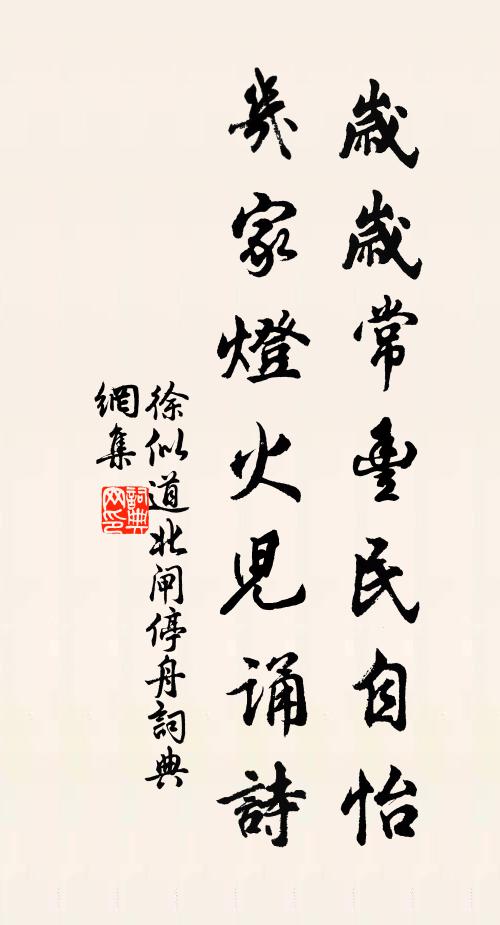 歲歲常豐民自怡
幾家燈火児誦詩
徐似道北闸停舟詞典
網集
詞典网印